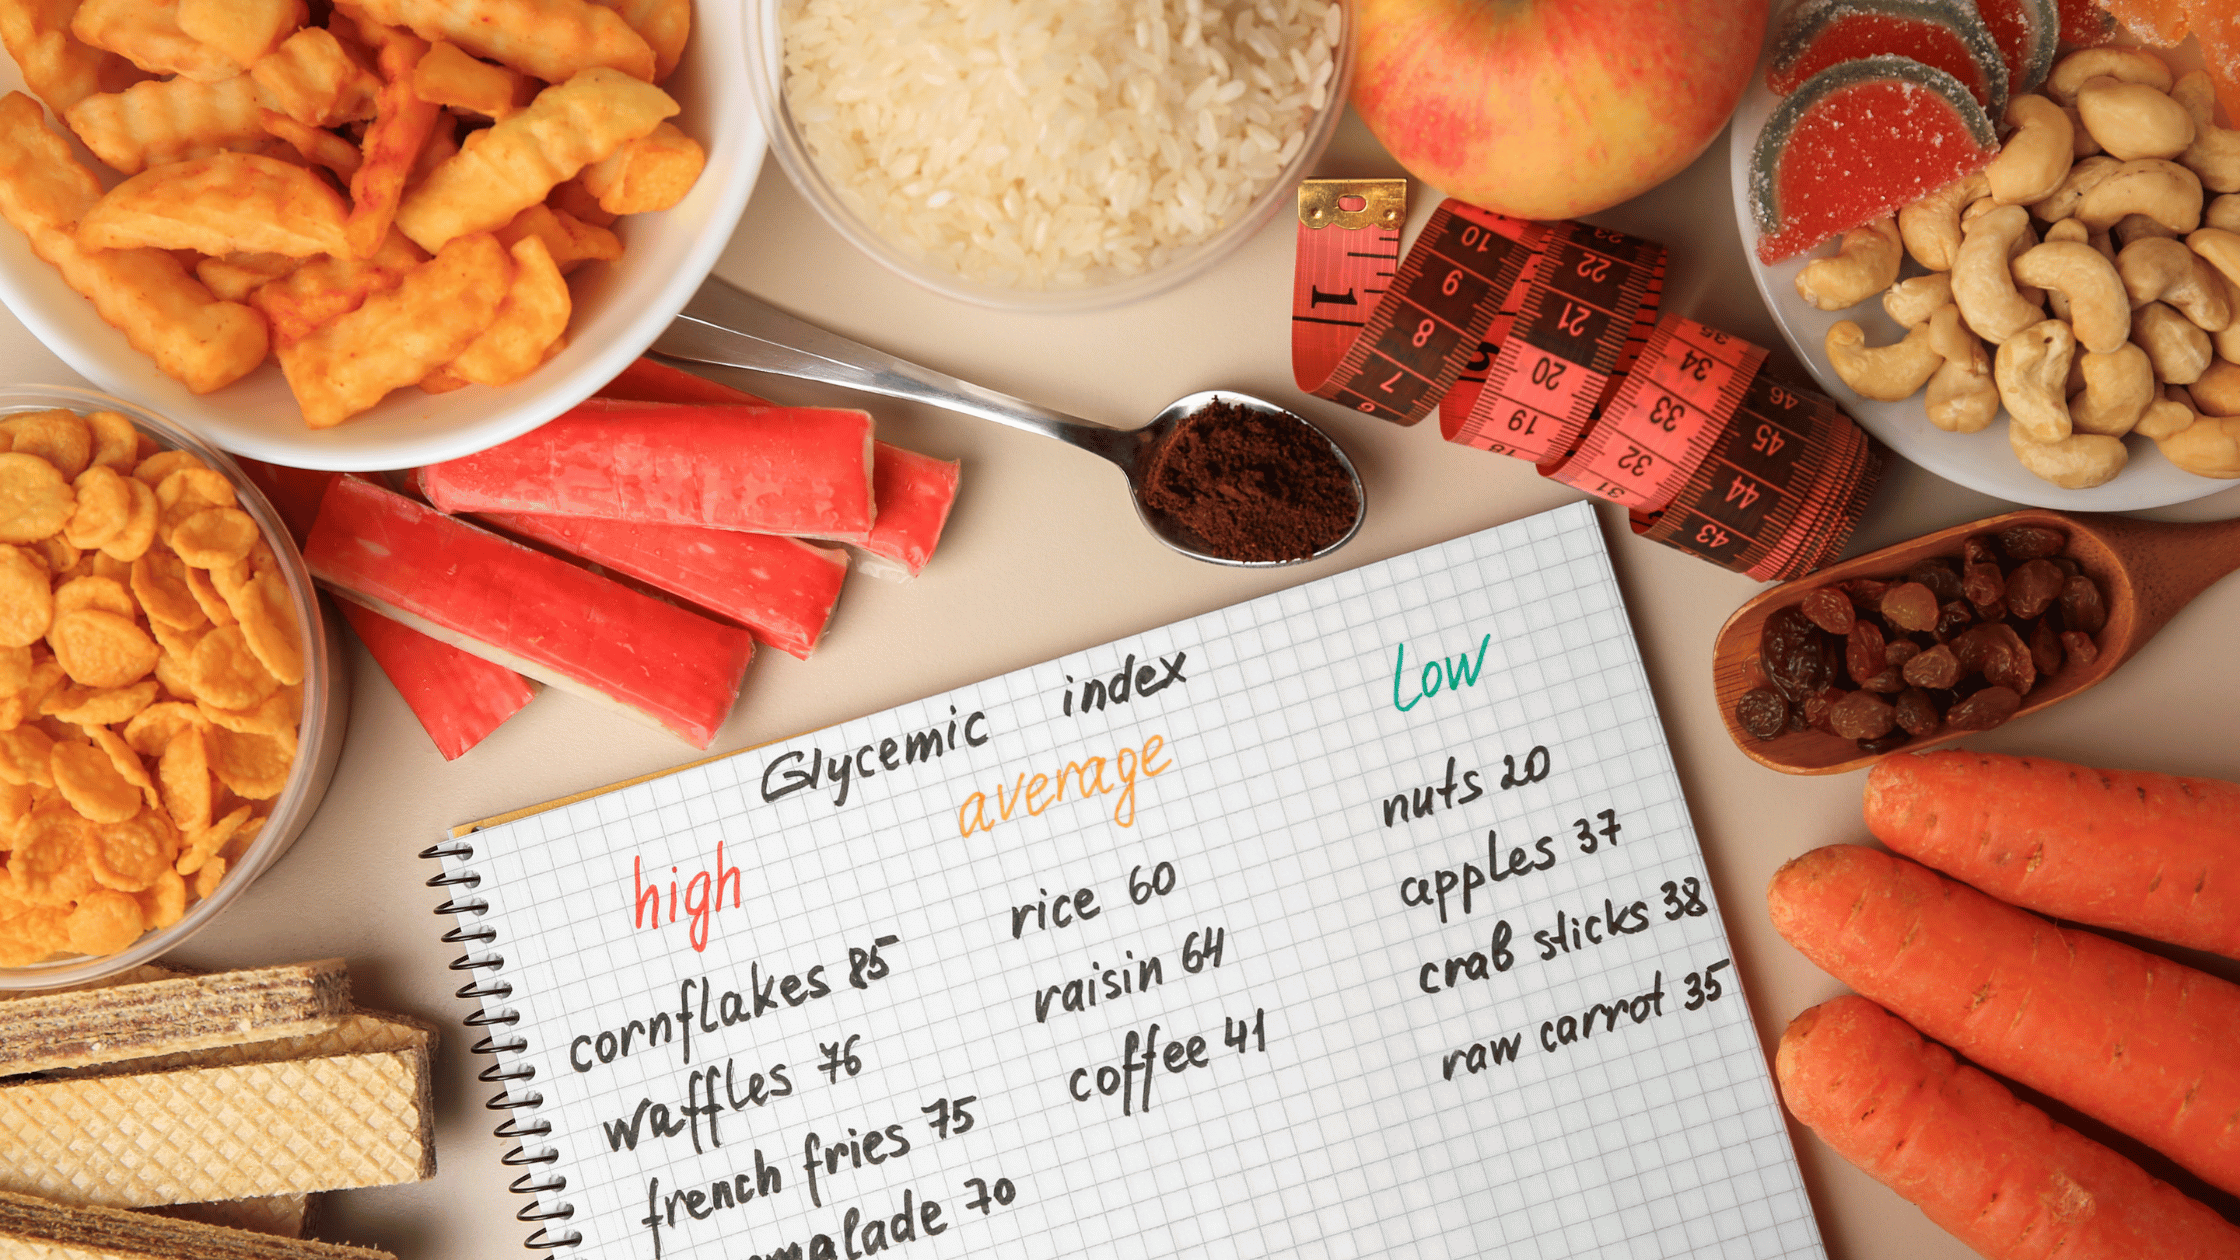 Glycemic index
high
cornflakes 85
waffles 76
french fries 75
malade 70
average
rice 60
raisin 64
coffee 41
Low
nuts 20
apples 37
crab sticks 38
raw carrot 35
1
10
9
8
7
6
23
22
21
20
19
18
35
34
33
32
31
46
45
44
43